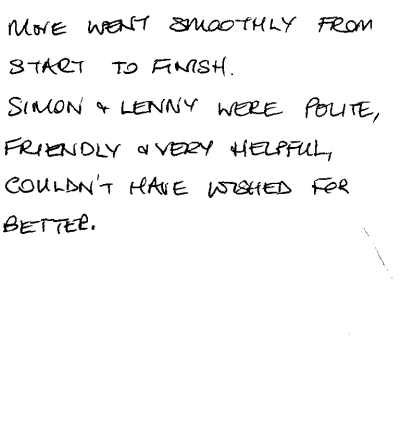 MOVE WENT SMOOTHLY FROM
START TO FINISH.
SIMON & LENNY WERE POLITE,
FRIENDLY & VERY HELPFUL,
COULDN'T HAVE WISHED FOR
BETTER.